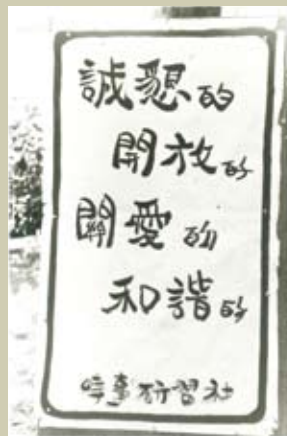 誠懇的
開放的
關愛的
和諧的
時事研習社